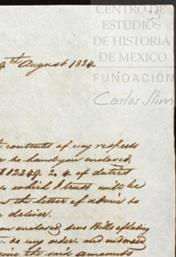 CENTRO DE
ESTUDIOS
DE HISTORIA
DE MEXICO
FUNDACIÓN
Carlos Slim
th August 183
contents of my respects
to hand you enclosed,
of duties
which I trust will be
the letter of advice to
deliver.
enclosed, two Bills of lading
to my order and endorsed
the said amounts